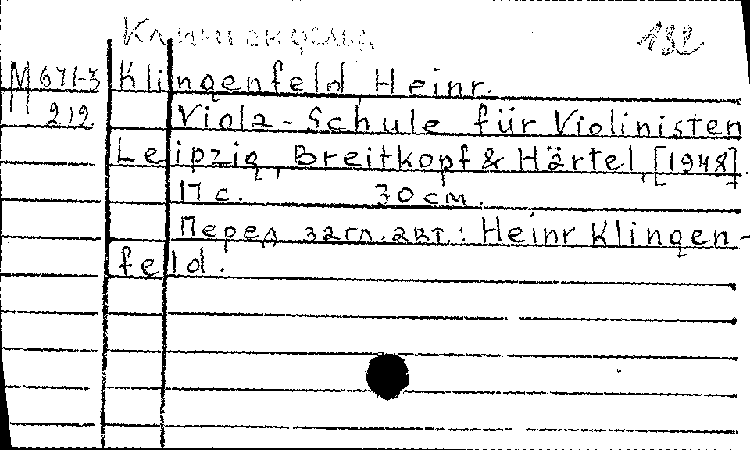 Клингенфельд 132
М 671-3 Klingenfeld, Heinr.
212 Viola-Schule für Violinisten
Leipzig, Breitkopf & Härtel, [1948].
17 с. 30 см.
Перед загл. авт.: Heinr Klingen-
feld.